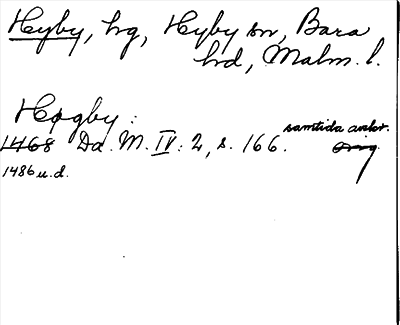 Hyby, hg, Hyby sn, Bara
hd, Malm. l.
Høgby:
samtida avskr.
1468 Da. M. IV: 2, s. 166. orig
1486 u.d.